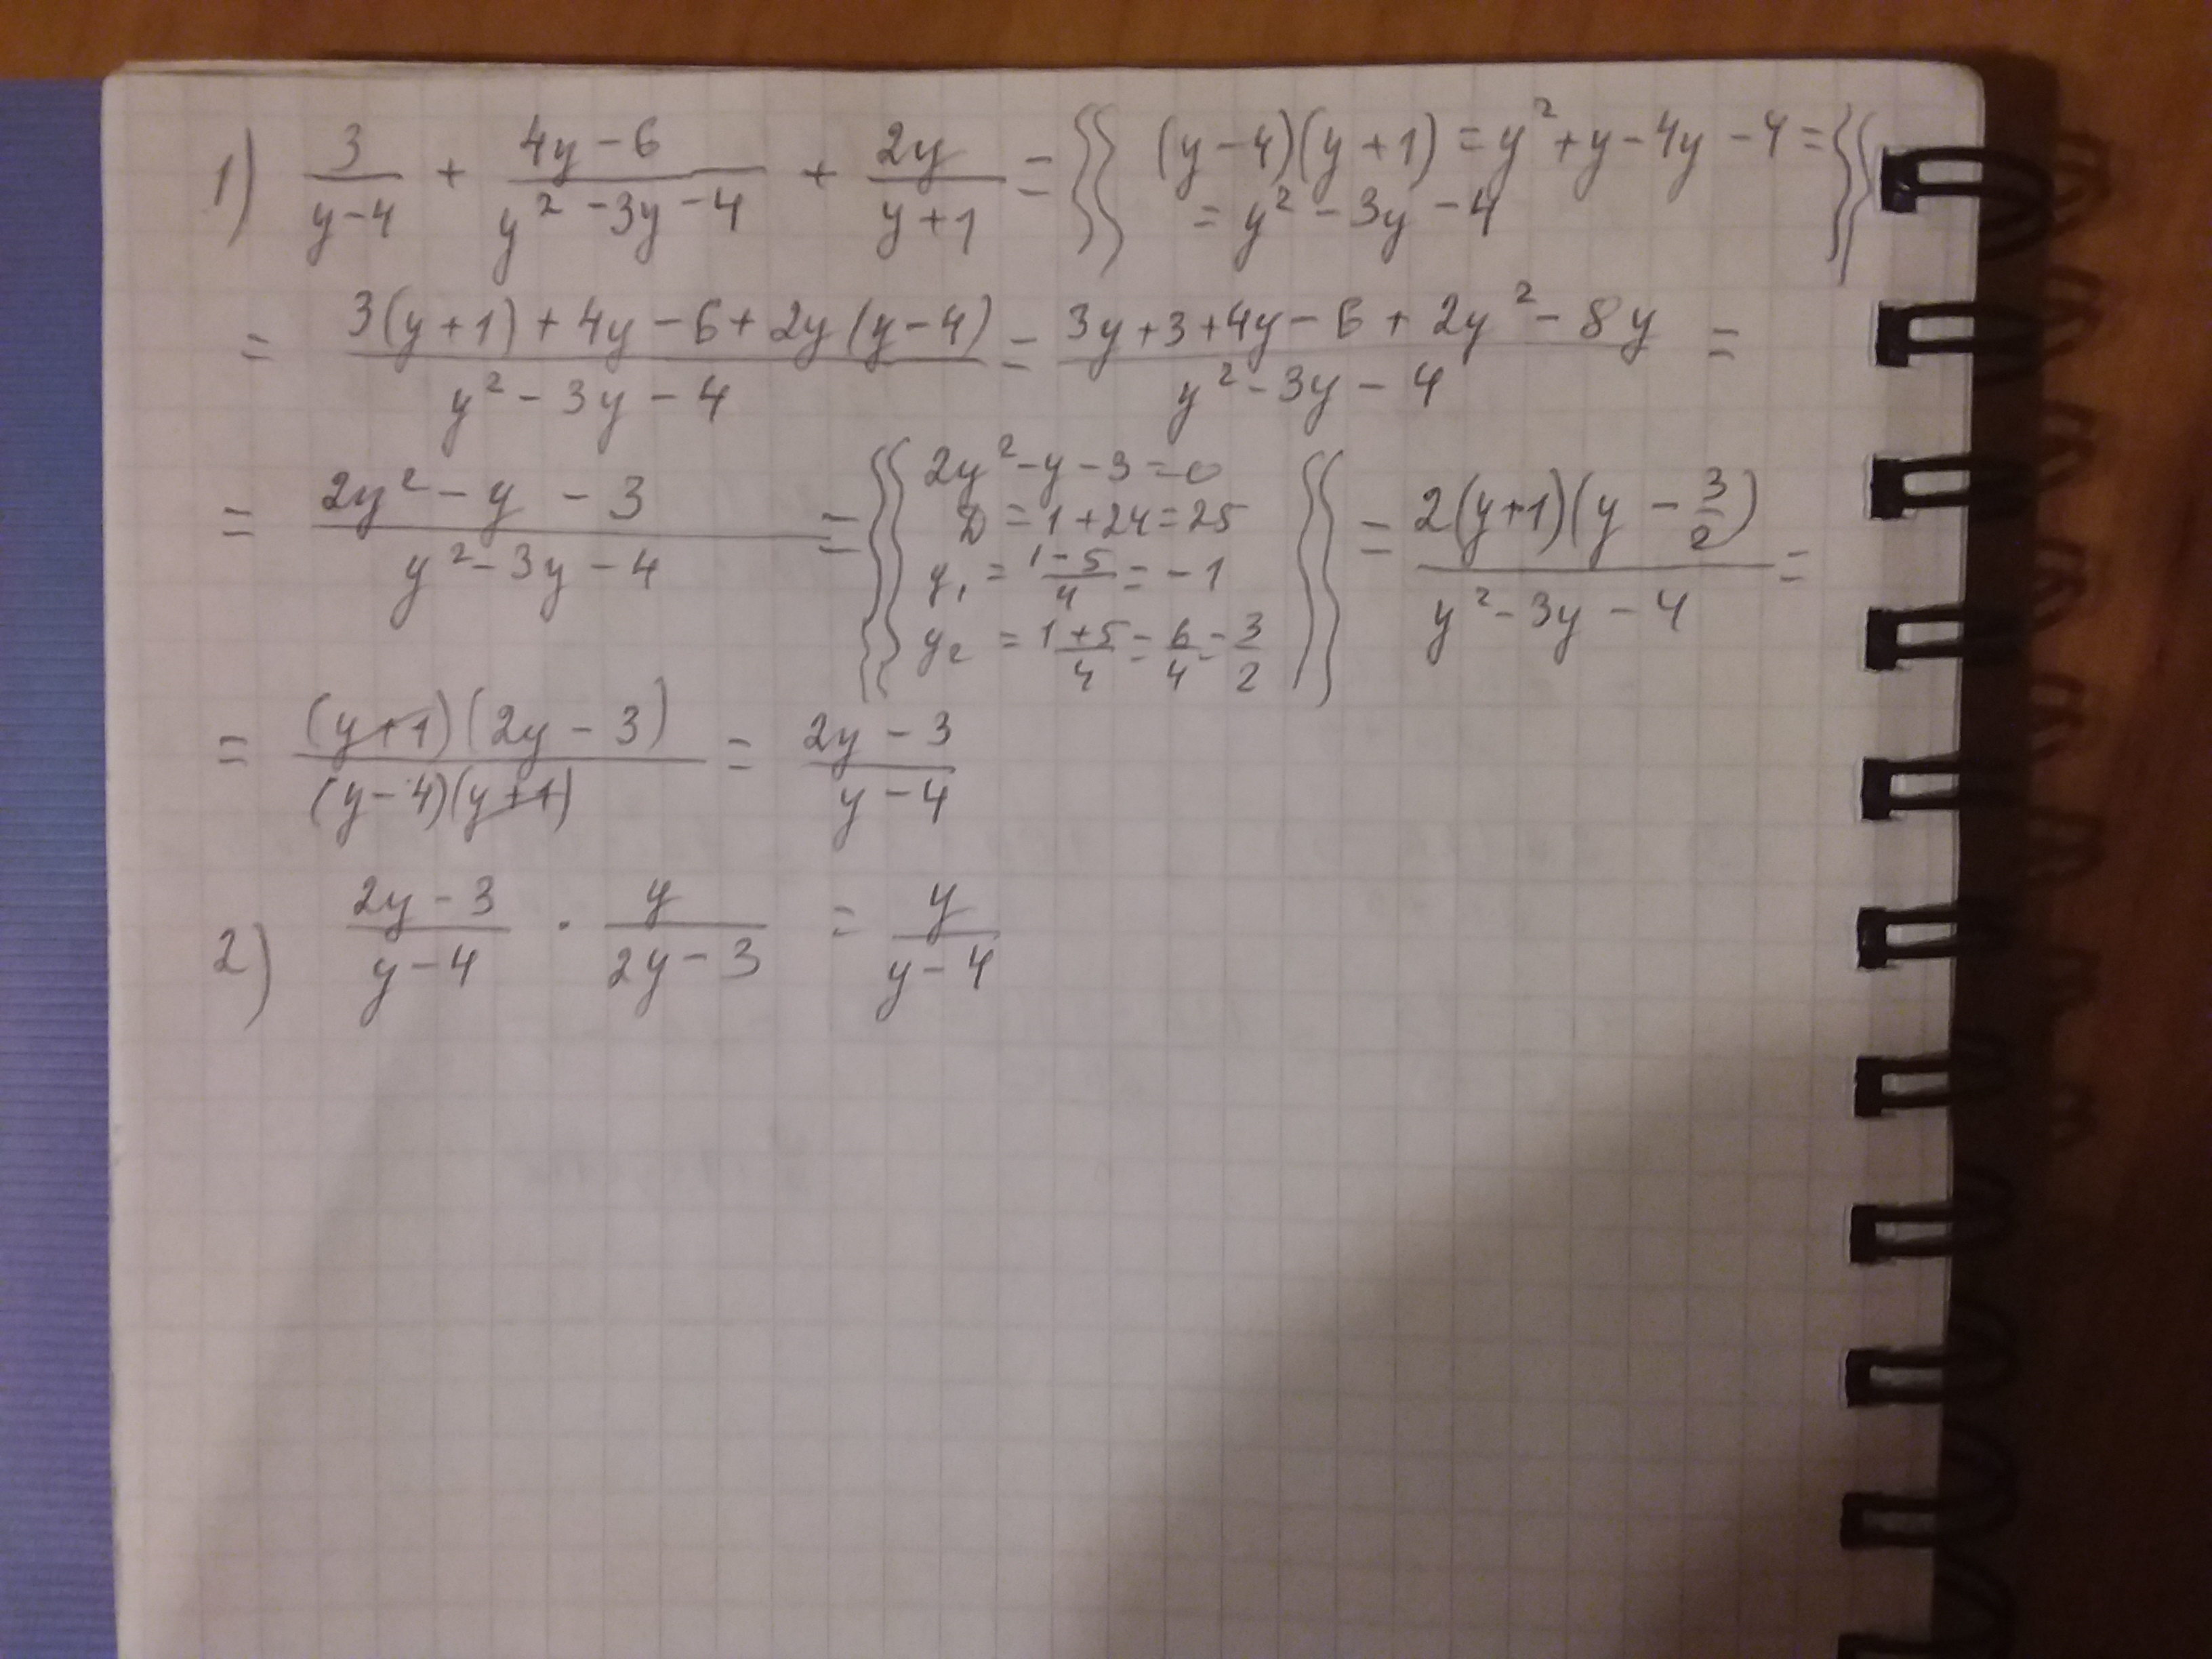 1) 3/(y-4) + (4y-6)/(y²-3y-4) + 2y/(y+1) = {{ (y-4)(y+1) = y²+y-4y-4 = = y²-3y-4 }}
= (3(y+1)+4y-6+2y(y-4))/(y²-3y-4) = (3y+3+4y-6+2y²-8y)/(y²-3y-4) =
= (2y²-y-3)/(y²-3y-4) = {{ 2y²-y-3=0
D=1+24=25
y₁ = (1-5)/4 = -1
y₂ = (1+5)/4 = 6/4 = 3/2 }} = (2(y+1)(y-3/2))/(y²-3y-4) =
= ((y+1)(2y-3))/((y-4)(y+1)) = (2y-3)/(y-4)
2) (2y-3)/(y-4) · y/(2y-3) = y/(y-4)